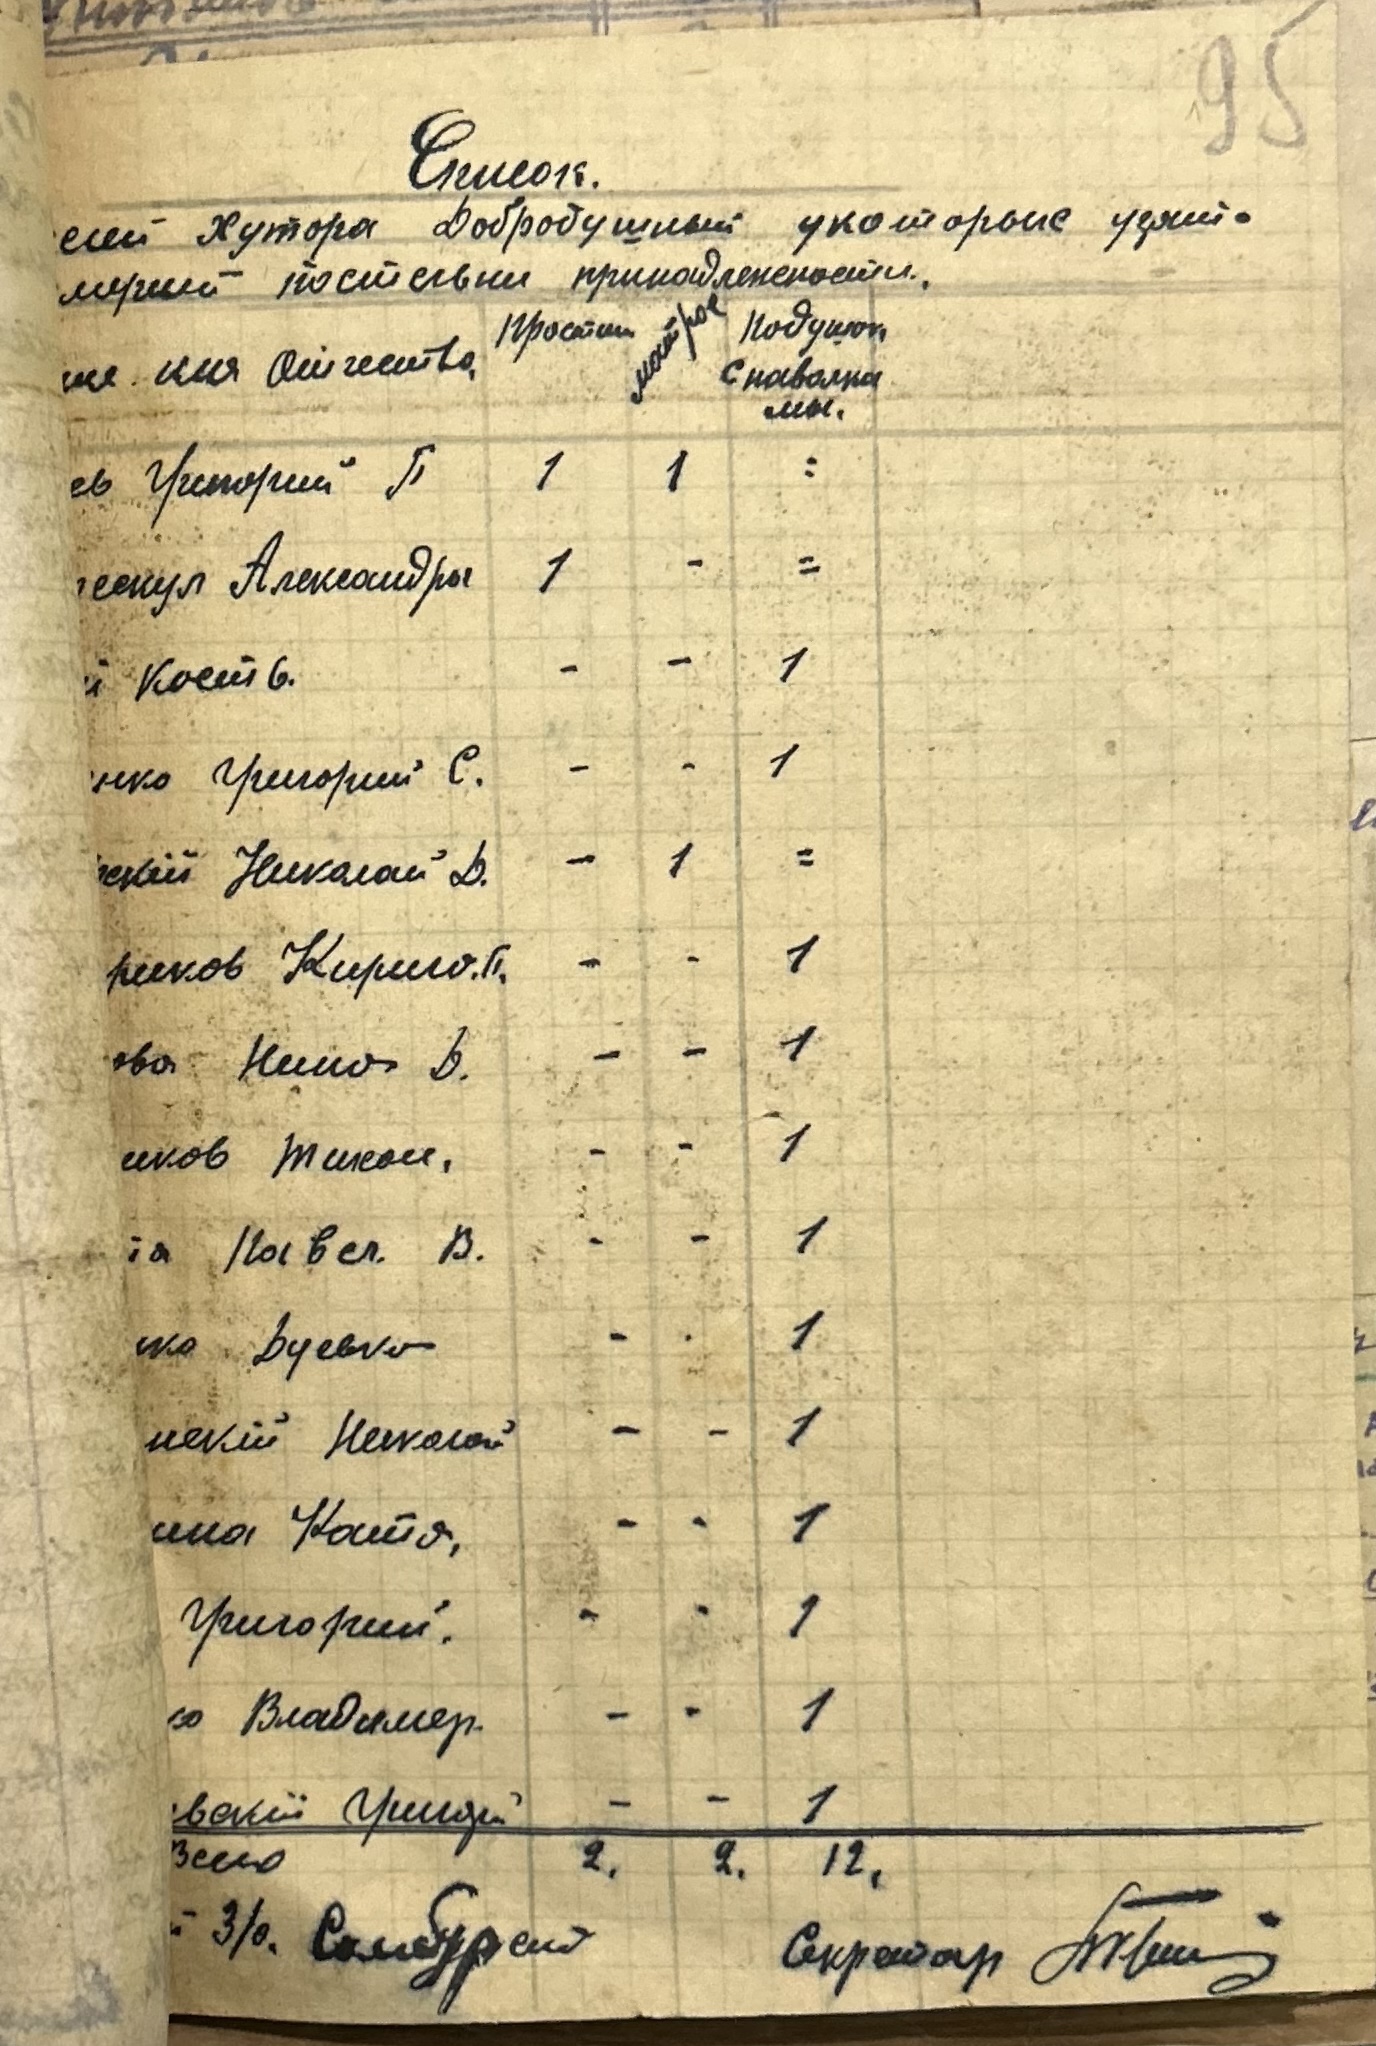 95
Список.
сий Хутора Добродушный укоторые узят-
мерий постельни принадлежности.
ие имя Отчество, Простын матрос Подушок
с наволка
мы.
ев Григорий П 1 1 =
ескул Александры 1 - =
й Костя. - - 1
нко Григорий С. - - 1
ский Николай Д. - 1 =
риков Кирило.П. - - 1
ова Нина Д. - - 1
иков Тихон, - - 1
ія Павел. В. - - 1
ко Дуська - - 1
нскій Николай - - 1
ина Катя, - - 1
Григорий. - - 1
ко Владимер. - - 1
евскій Григорий - - 1
Всего 2. 2. 12.
й З/о. Секретар